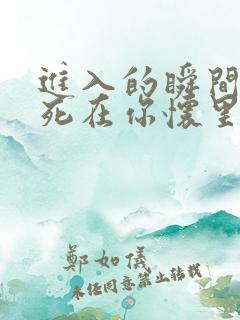 進入的瞬間
死在你懷里
鄭如儀
未經同意禁止轉載